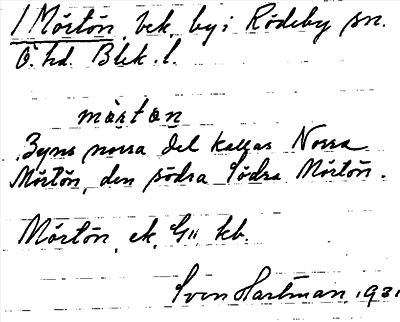 1 Mörtön, bek. by i Rödeby sn.
Ö. hd. Blek. l.
mörtön
Byns norra del kallas Norra
Mörtön, den södra Södra Mörtön.
Mörtön, ek. G11 kb.
Sven Hartman, 1931